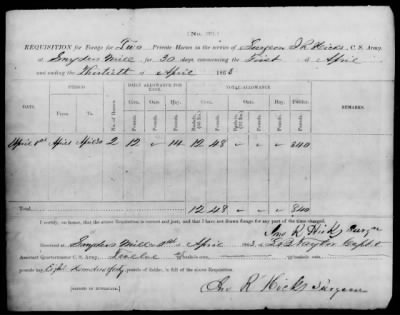 (No.
REQUISITION for Forage for Two Private Horses in the service of Surgeon J R Hicks, C. S. Army,
at Snyders Mill for 30 days, commencing the First of April
and ending the Thirtieth of April 1863
DATE.
PERIOD
From
To
No. of Horses.
DAILY ALLOWANCE FOR EACH.
Corn.
Oats.
Hay.
Pounds.
Pounds.
Pounds.
TOTAL ALLOWANCE.
Corn.
Oats.
Hay.
Fodder.
Pounds.
Pounds.
Pounds.
REMARKS.
April 1st April 1 April 30 2 12 " 14 12 48 " " " 840
Total 12 48 " " " 840
I certify, on honor, that the above Requisition is correct and just, and that I have not drawn forage for any part of the time charged.
Jno R Hicks Surgeon
Received at Snyders Mill 1st of April 1863, of Capt
Assistant Quartermaster C. S. Army, Twelve bushels corn, bushels oats,
pounds hay, Eight Hundred forty pounds of fodder, in full of the above Requisition.
[SIGNED IN DUPLICATE.]
Jno R Hicks Surgeon